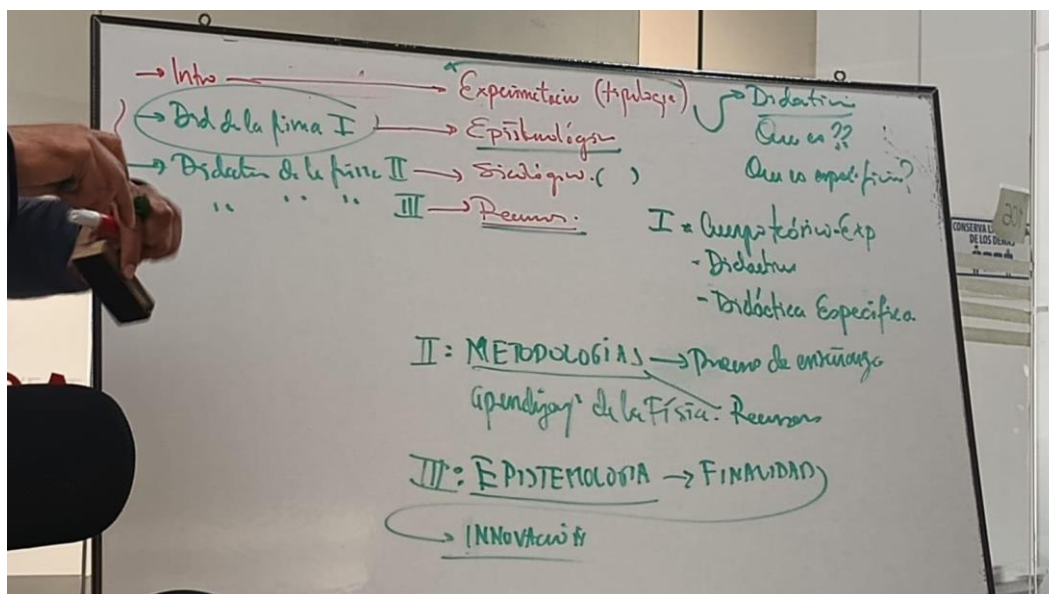 → Intro → Experimentación (tipología)
→ Did de la física I → Epistemológico
→ Didáctica de la física II → Sicológico. ( )
" " " III → Recursos.
→ Didáctica
Que es??
Que es específica?
I = Cuerpo teórico-Exp
- Didáctica
- Didáctica Específica
II: METODOLOGÍAS → Proceso de enseñanza
aprendizaje de la Física. Recursos
III: EPISTEMOLOGIA → FINALIDAD
→ INNOVACIÓN
CONSERVA L
DE LOS DEMÁS